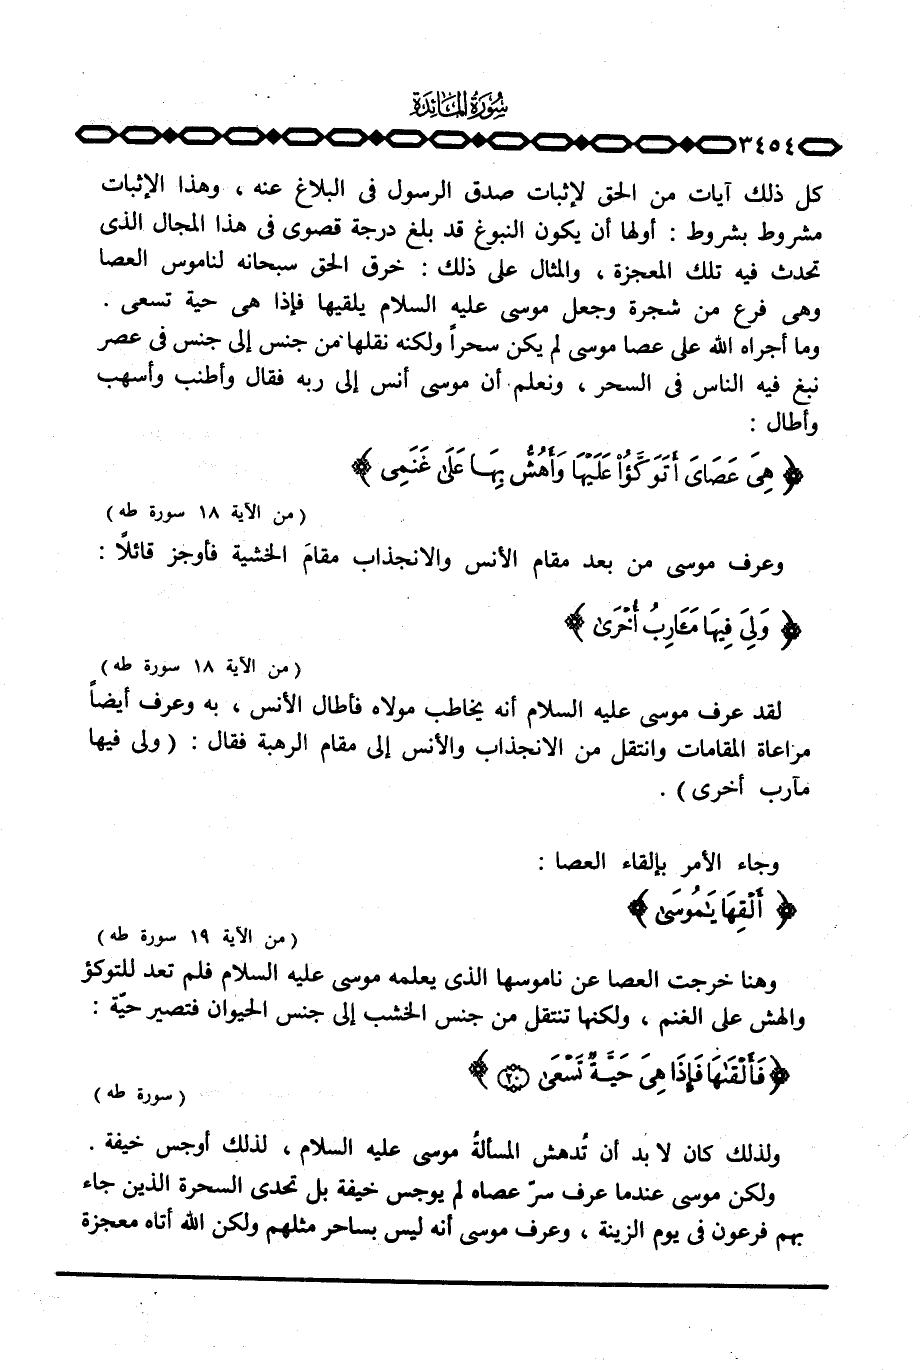 سُورَةُ المَائِدَة
٣٤٥٤
كل ذلك آيات من الحق لإثبات صدق الرسول فى البلاغ عنه ، وهذا الإثبات
مشروط بشروط : أولها أن يكون النبوغ قد بلغ درجة قصوى فى هذا المجال الذى
تحدث فيه تلك المعجزة ، والمثال على ذلك : خرق الحق سبحانه لناموس العصا
وهى فرع من شجرة وجعل موسى عليه السلام يلقيها فإذا هى حية تسعى .
وما أجراه الله على عصا موسى لم يكن سحراً ولكنه نقلها من جنس إلى جنس فى عصر
نبغ فيه الناس فى السحر ، ونعلم أن موسى أنس إلى ربه فقال وأطنب وأسهب
وأطال :
﴿ هِىَ عَصَاىَ أَتَوَكَّؤُاْ عَلَيْهَا وَأَهُشُّ بِهَا عَلَىٰ غَنَمِى ﴾
( من الآية ١٨ سورة طه )
وعرف موسى من بعد مقام الأنس والانجذاب مقامَ الخشية فأوجز قائلاً :
﴿ وَلِىَ فِيهَا مَـَٔارِبُ أُخْرَىٰ ﴾
( من الآية ١٨ سورة طه )
لقد عرف موسى عليه السلام أنه يخاطب مولاه فأطال الأنس ، به وعرف أيضاً
مراعاة المقامات وانتقل من الانجذاب والأنس إلى مقام الرهبة فقال : ( ولى فيها
مآرب أخرى ) .
وجاء الأمر بإلقاء العصا :
﴿ أَلْقِهَا يَـٰمُوسَىٰ ﴾
( من الآية ١٩ سورة طه )
وهنا خرجت العصا عن ناموسها الذى يعلمه موسى عليه السلام فلم تعد للتوكؤ
والهش على الغنم ، ولكنها تنتقل من جنس الخشب إلى جنس الحيوان فتصير حيّة :
﴿ فَأَلْقَىٰهَا فَإِذَا هِىَ حَيَّةٌ تَسْعَىٰ ٢٠ ﴾
( سورة طه )
ولذلك كان لا بد أن تُدهش المسألةُ موسى عليه السلام ، لذلك أوجس خيفة .
ولكن موسى عندما عرف سرّ عصاه لم يوجس خيفة بل تحدى السحرة الذين جاء
بهم فرعون فى يوم الزينة ، وعرف موسى أنه ليس بساحر مثلهم ولكن الله أتاه معجزة